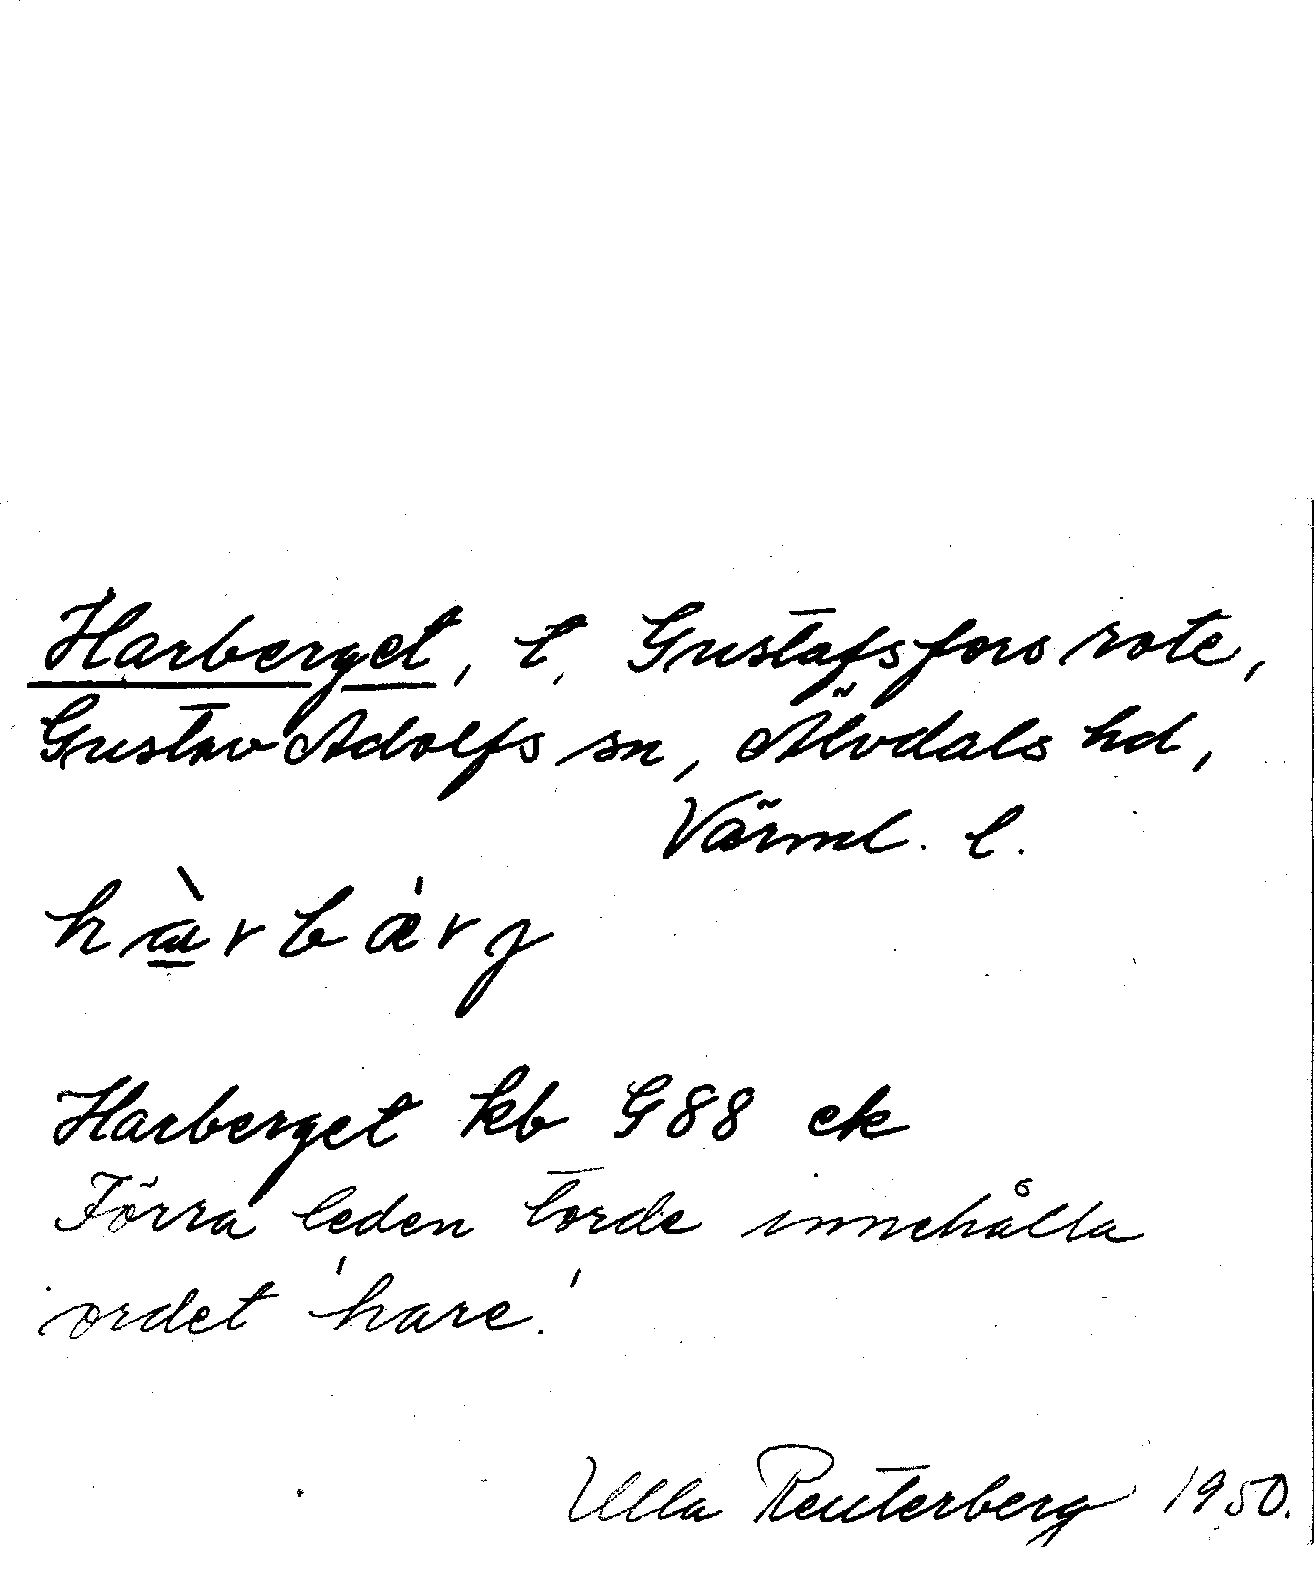 Harberget, t. Gustafsfors rote,
Gustav Adolfs sn, Älvdals hd,
Värml. l.
hàrbǽrj
Harberget kb G88 ek
Förra leden torde innehålla
ordet 'hare'.
Ulla Reuterberg 1950.